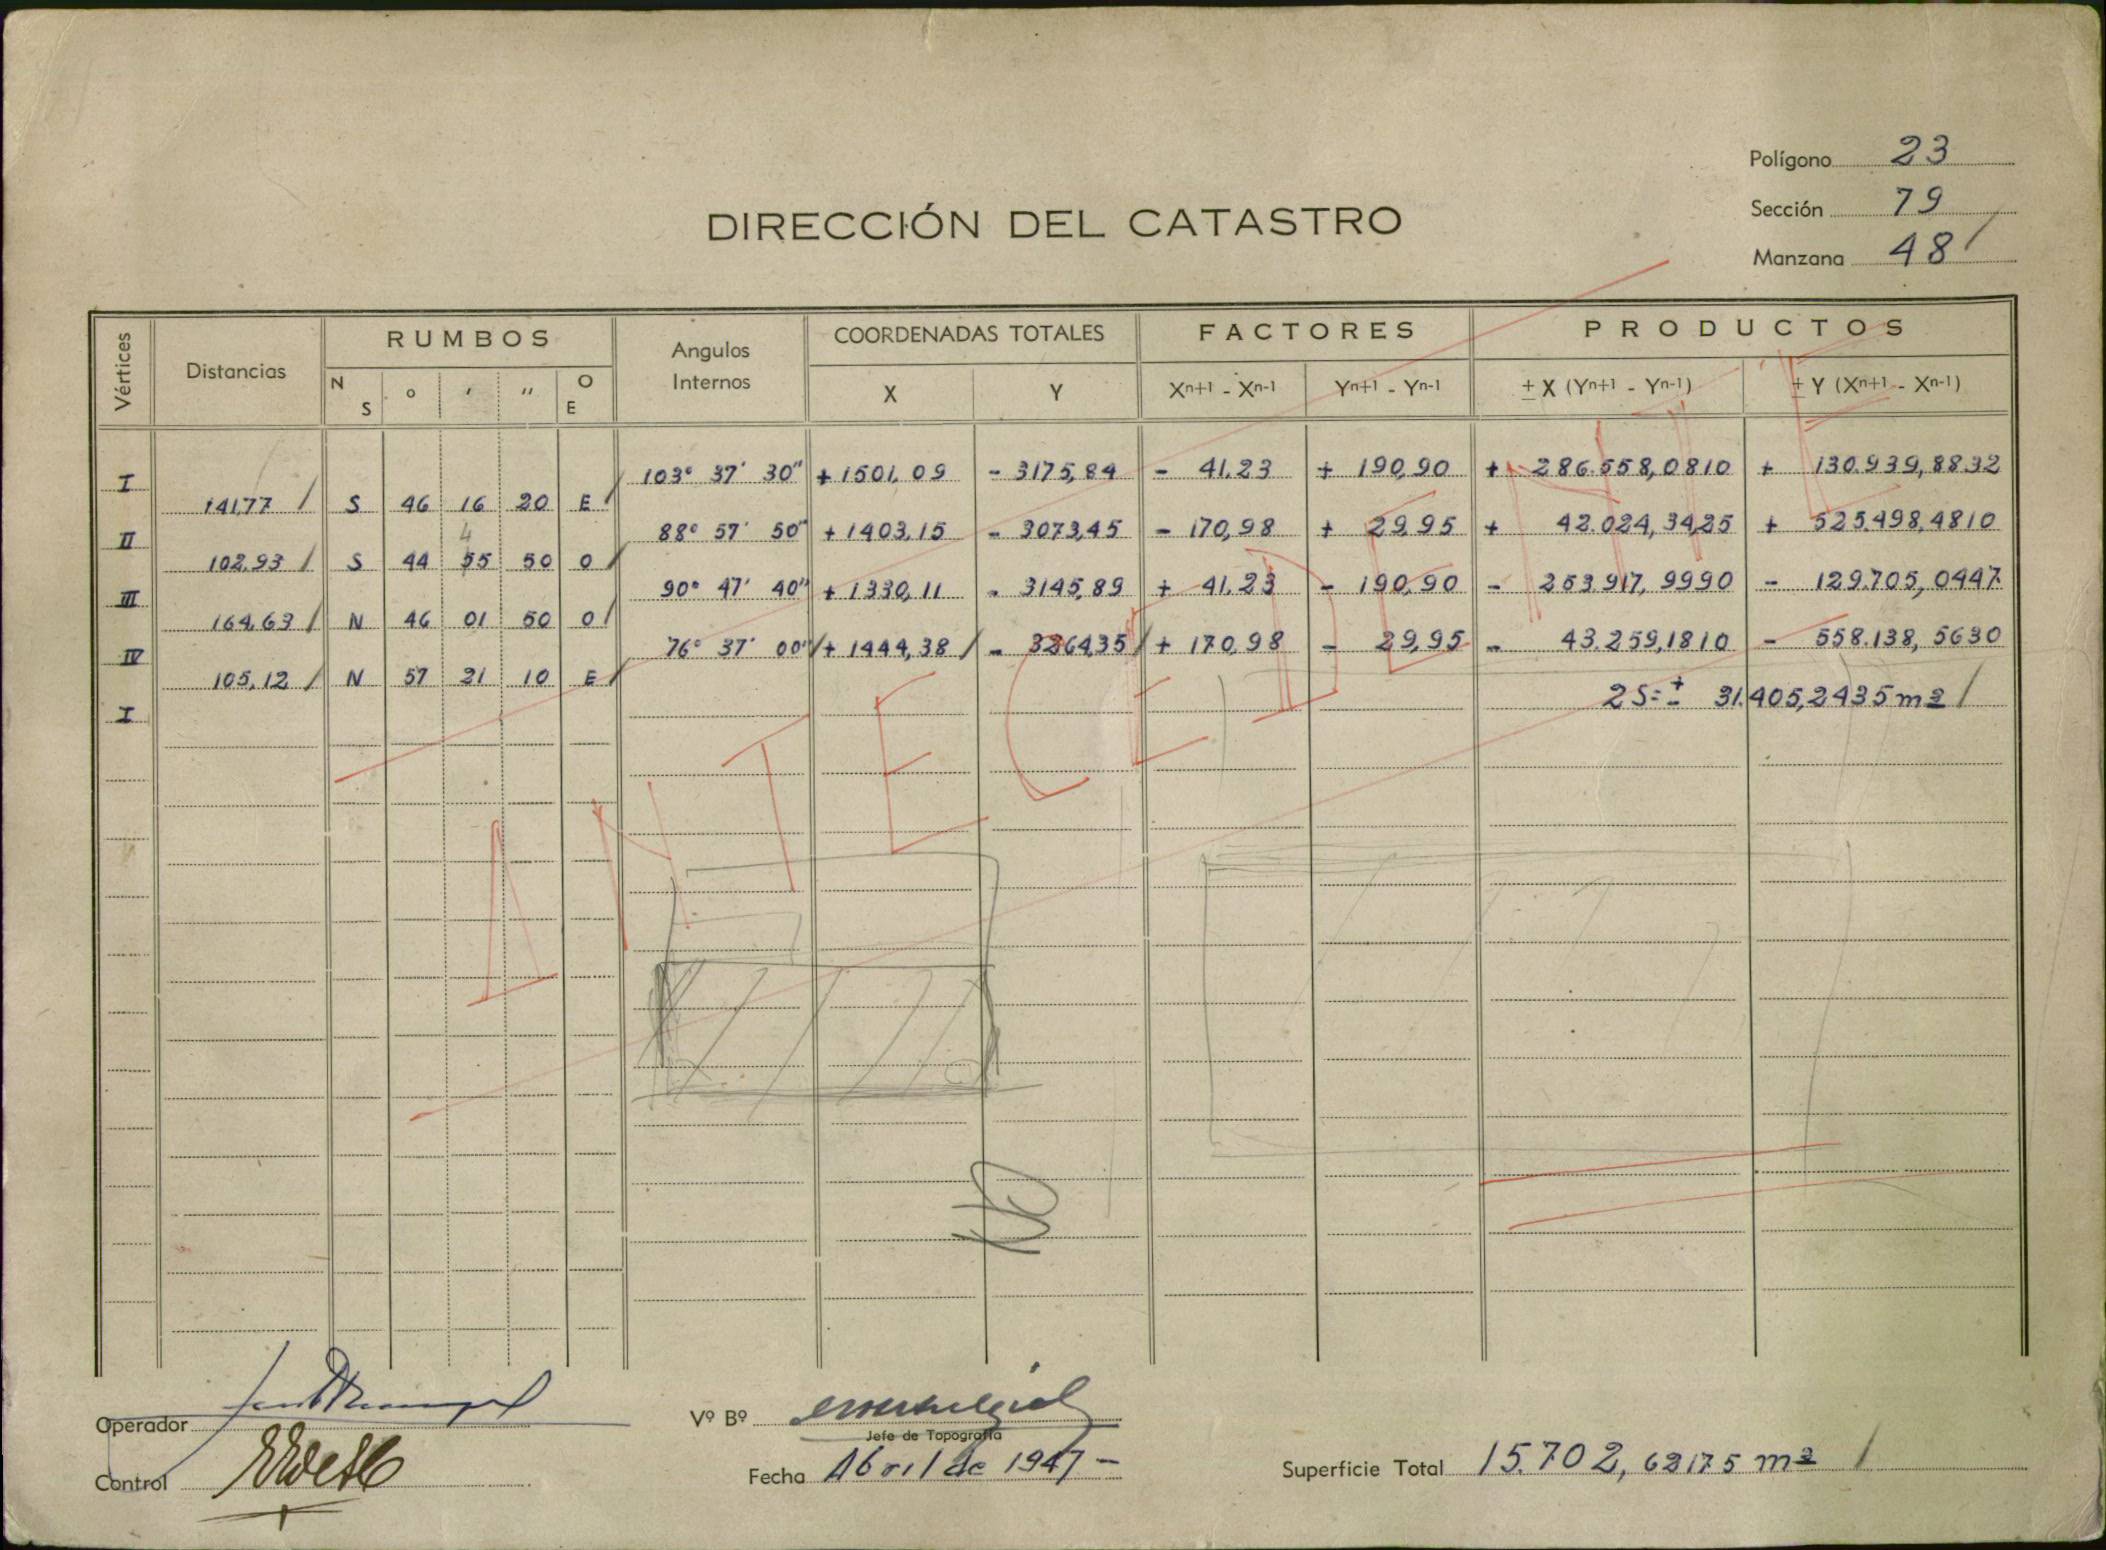 Polígono 23
Sección 79
DIRECCIÓN DEL CATASTRO
Manzana 48 /
Vértices Distancias RUMBOS Angulos Internos COORDENADAS TOTALES FACTORES PRODUCTOS
N S ° ′ ″ O E X Y Xn+1 - Xn-1 Yn+1 - Yn-1 ± X (Yn+1 - Yn-1) ± Y (Xn+1 - Xn-1)
I 103° 37′ 30″ + 1501,09 - 3175,84 - 41,23 + 190,90 + 286.558,0810 + 130.939,8832
141,77 / S 46 16 20 E /
4
II 88° 57′ 50″ + 1403,15 - 3073,45 - 170,98 + 29,95 + 42.024,3425 + 525.498,4810
102,93 / S 44 55 50 O /
III 90° 47′ 40″ + 1330,11 - 3145,89 + 41,23 - 190,90 - 253.917,9990 - 129.705,0447
164,63 / N 46 01 50 O /
IV 76° 37′ 00″ / + 1444,38 / - 3264,35 / + 170,98 - 29,95 - 43.259,1810 - 558.138,5630
105,12 / N 57 21 10 E /
I 2S=± 31.405,2435 m2 /
ANTECEDENTE
Operador
Vº Bº
Jefe de Topografía
Control
Fecha Abril de 1947 -
Superficie Total 15.702,62175 m2 /